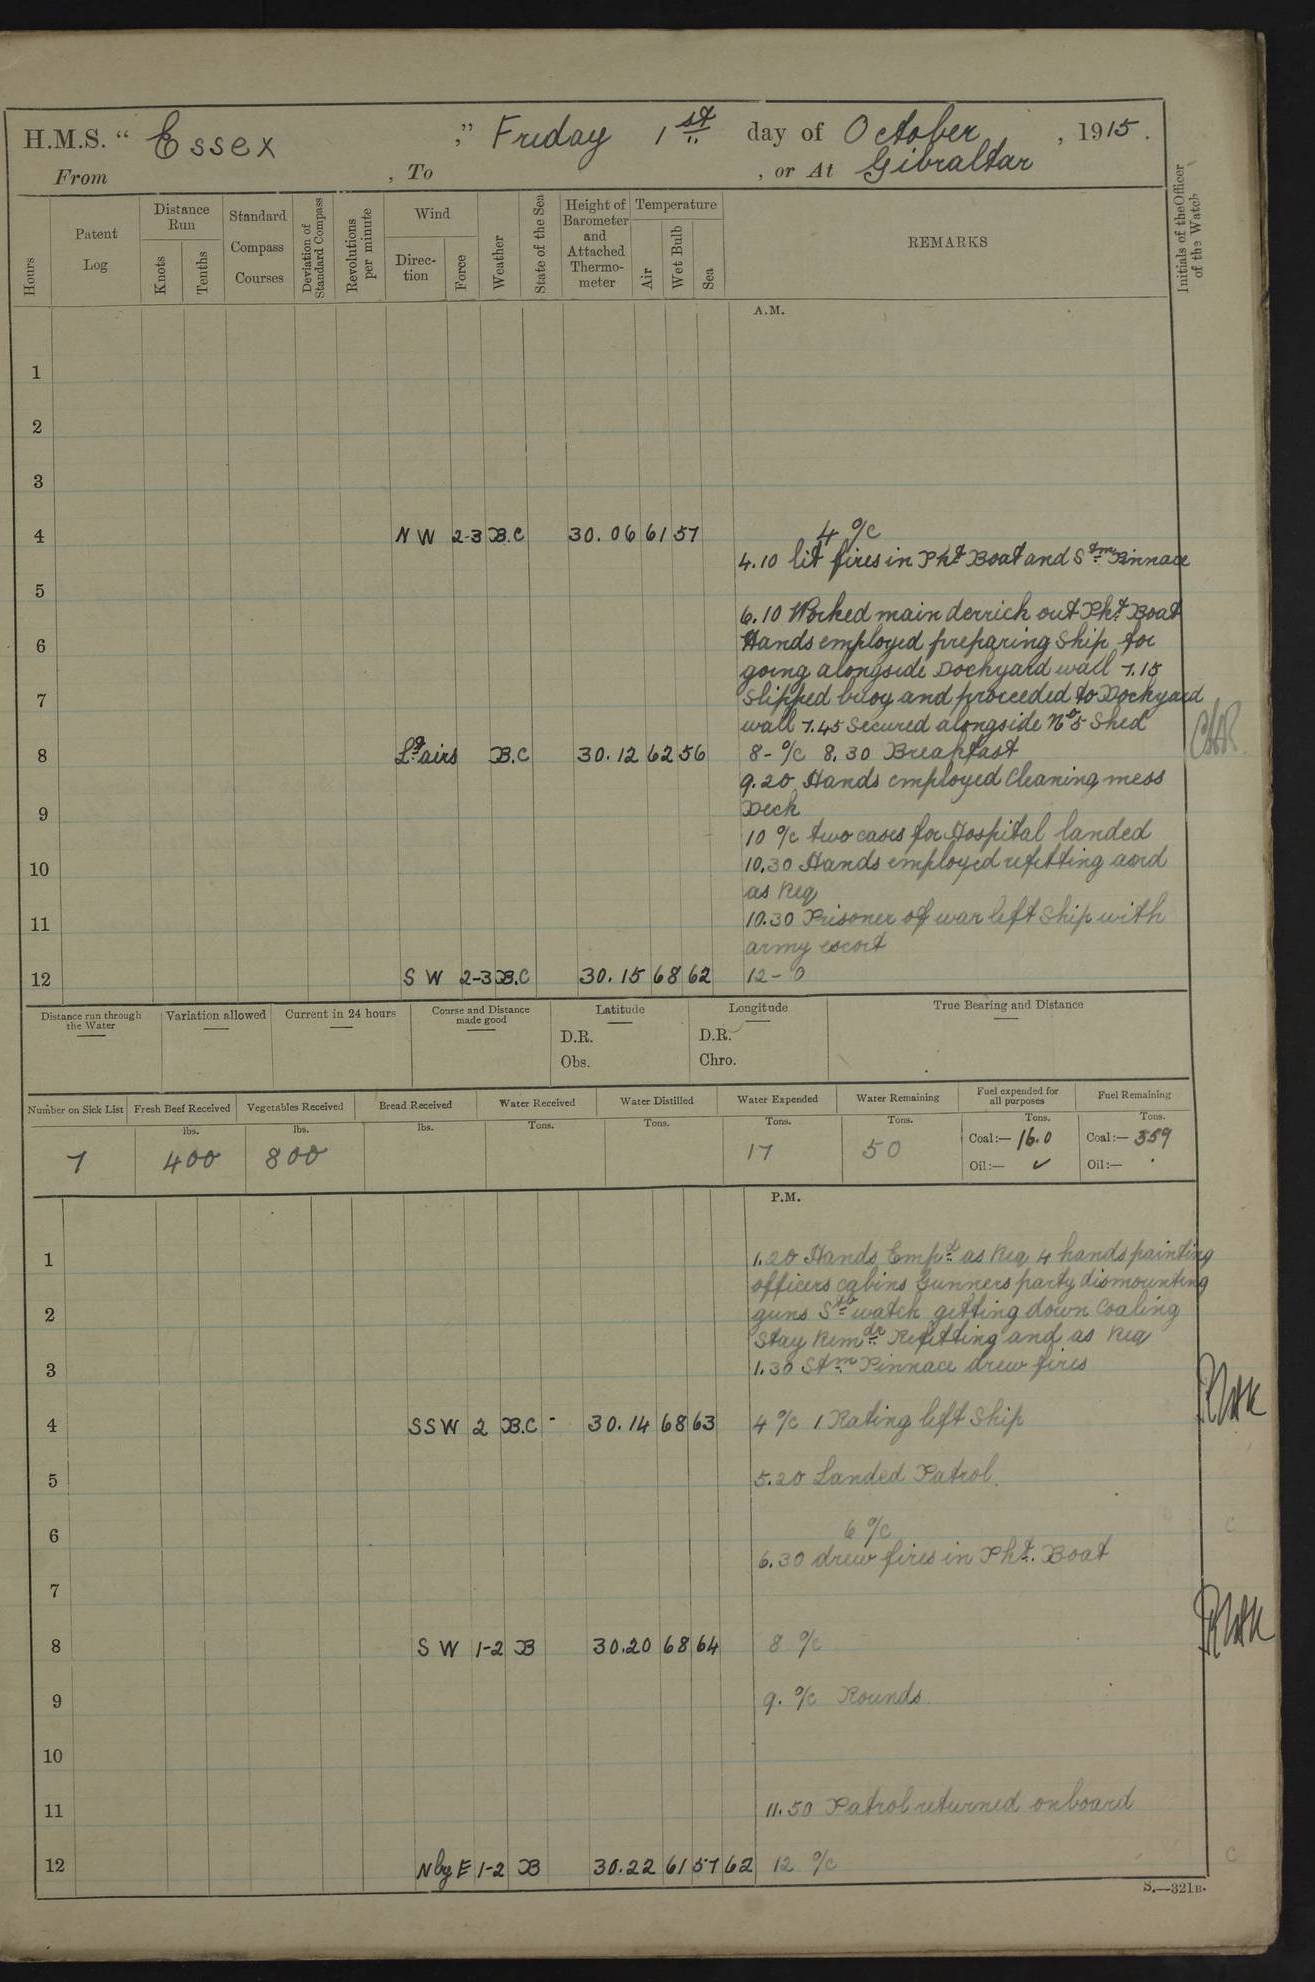 H.M.S. “ Essex ,” Friday 1st day of October , 1915 .
From , To , or At Gibraltar
Hours
Patent Log
Distance Run
Knots
Tenths
Standard Compass Courses
Deviation of Standard Compass
Revolutions per minute
Wind
Direction
Force
Weather
State of the Sea
Height of Barometer and Attached Thermometer
Temperature
Air
Wet Bulb
Sea
REMARKS
Initials of the Officer of the Watch
A.M.
1
2
3
4 NW 2-3 B.C 30.06 61 57 4 o/c
4.10 lit fires in Pkt Boat and Stm Pinnace
5
6.10 Worked main derrick out Pkt Boat
6 Hands employed preparing Ship for
going alongside Dockyard wall 7.15
7 Slipped buoy and proceeded to Dockyard
wall 7.45 Secured alongside No 5 Shed
8 Lt airs B.C 30.12 62 56 8- o/c 8.30 Breakfast
9.20 Hands employed Cleaning mess
9 Deck
10 o/c two cases for Hospital landed
10 10.30 Hands employed refitting and
as Req
11 10.30 Prisoner of war left Ship with
army escort
12 SW 2-3 B.C 30.15 68 62 12- 0
Distance run through the Water
Variation allowed
Current in 24 hours
Course and Distance made good
Latitude
D.R.
Obs.
Longitude
D.R.
Chro.
True Bearing and Distance
Number on Sick List
Fresh Beef Received
Vegetables Received
Bread Received
Water Received
Water Distilled
Water Expended
Water Remaining
Fuel expended for all purposes
Fuel Remaining
lbs. lbs. lbs. Tons. Tons. Tons. Tons. Tons. Tons.
7 400 800 17 50 Coal:— 16.0 Coal:— 359
Oil:— ✓ Oil:—
P.M.
1 1.20 Hands Empd as Req 4 hands painting
officers cabins Gunners party dismounting
2 guns Stb watch getting down Coaling
Stay Remdr Refitting and as Req
3 1.30 Stm Pinnace drew fires
4 SSW 2 B.C - 30.14 68 63 4 o/c 1 Rating left Ship
5 5.20 Landed Patrol.
6 6 o/c
6.30 drew fires in Pkt. Boat
7
8 SW 1-2 B 30.20 68 64 8 o/c
9 9. o/c Rounds.
10
11 11.50 Patrol returned onboard
12 N by E 1-2 B 30.22 61 57 62 12 o/c
S.—321B.